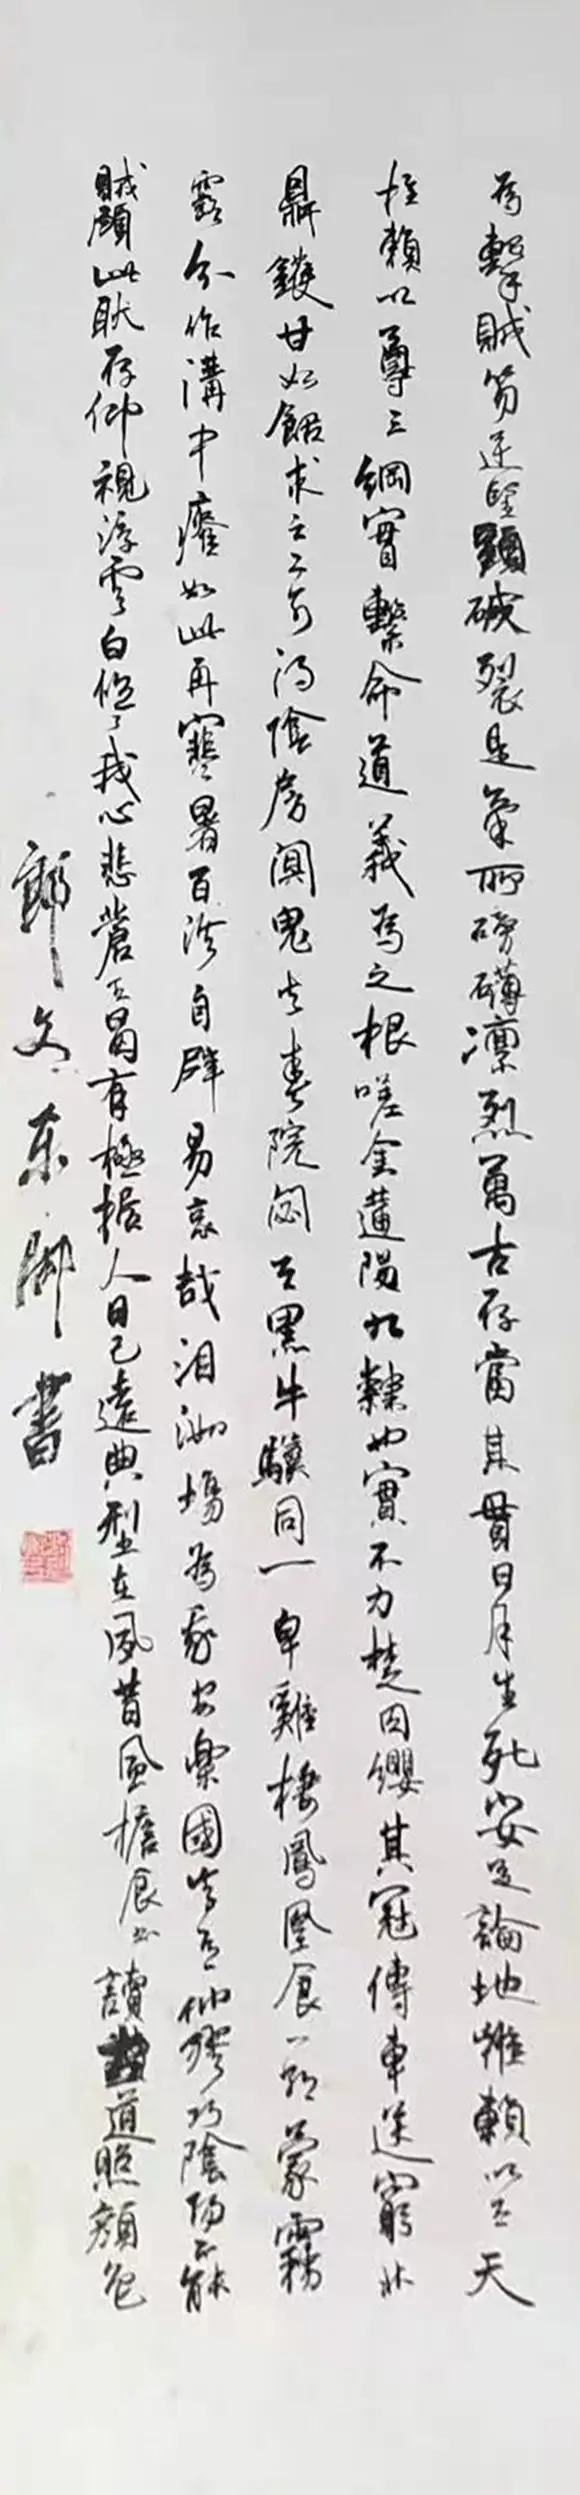 為擊賊笏逆豎頭破裂是氣所磅礴凜烈萬古存當其貫日月生死安足論地維賴以立天
柱賴以尊三綱實繫命道義為之根嗟余遘陽九隸也實不力楚囚纓其冠傳車送窮北
鼎鑊甘如飴求之不可得陰房闃鬼火春院閟天黑牛驥同一皁雞棲鳳凰食一朝蒙霧
露分作溝中瘠如此再寒暑百沴自辟易哀哉沮洳場為我安樂國豈有他繆巧陰陽不能
賊顧此耿存仰視浮雲白悠悠我心悲蒼天曷有極哲人日已遠典型在夙昔風檐展書讀道照顏色
郭文東 書